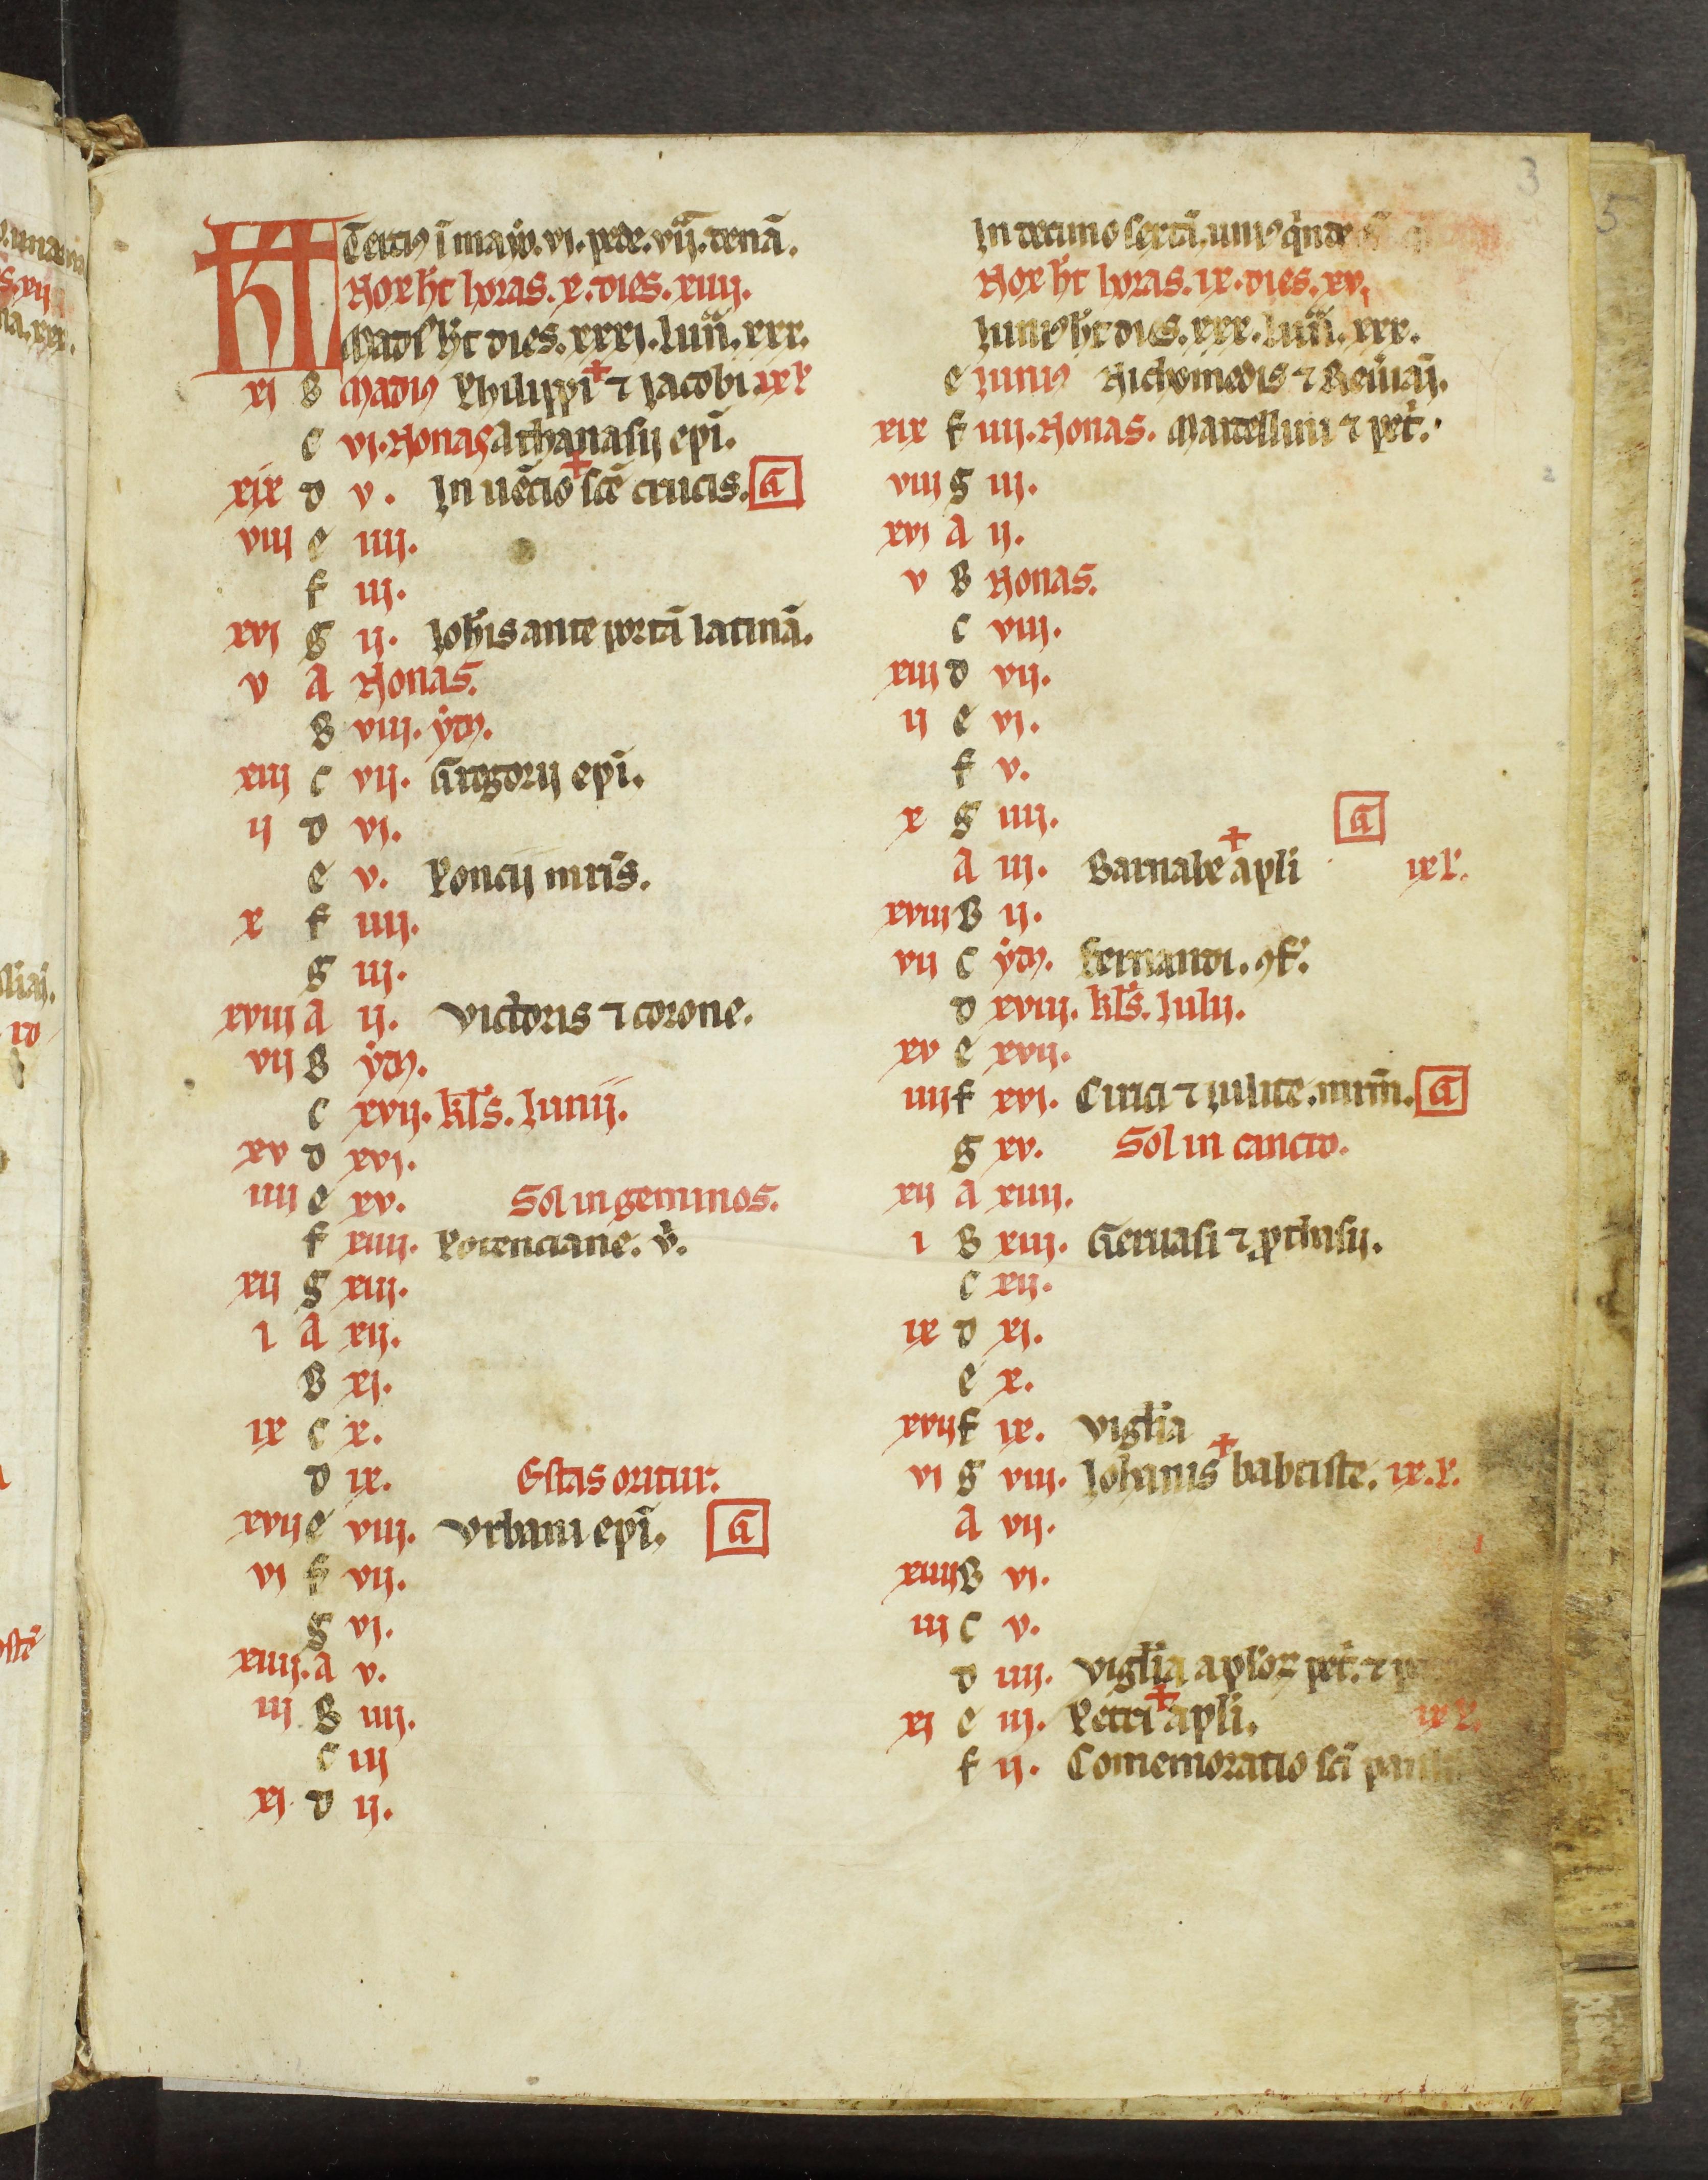 3
KL Terci9 i maio. vi. pede. vii. cenã.
Nox hr̃ horas. x. dies. xiiii.
Madi9 hr̃ dies. xxxi. luñ. xxx.
xi B Madi9 Philippi + ⁊ Jacobi ix l'
c vi. Nonas Athanasii ep̃i.
xix d v. In uẽcio + sc̃e crucis. G
viii e iiii.
f iii.
xvi g ii. Ioh̃is ante portã latinã.
v A Nonas.
B viii. yd9.
xiii c vii. Gregorii ep̃i.
ii d vi.
e v. Poncii mr̃is.
x f iiii.
g iii.
xviii A ii. Victoris ⁊ corone.
vii B yd9.
c xvii. kls̃. Junii.
xv d xvi.
iiii e xv. Sol in geminos.
f xiiii. Potenciane. v̾.
xii g xiii.
i A xii.
B xi.
ix c x.
d ix. Estas oritur.
xvii e viii. Vrbani ep̃i. G
vi f vii.
g vi.
xiiii. A v.
iii B iiii.
c iii
xi d ii.
In decimo sextũ. uni9 q̃nde
Nox hr̃ horas. ix. dies. xv.
Juni9 hr̃ dies. xxx. luñ. xxx.
e Juni9 Nichomedis ⁊
xix f iiii. Nonas. Marcellini ⁊ pet̾.
viii g iii.
xvi A ii.
v B Nonas.
c viii.
xiii d vii.
ii e vi.
f v.
x g iiii. G
A iii. Barnabe + apli ix l'.
xviii B ii.
vii c yd9. Bernardi. ꝯf̾.
d xviii. kls̃. Julii.
xv e xvii.
iiii f xvi. Cirici ⁊ iulite. mrm̃. G
g xv. Sol in cancro.
xii A xiiii.
i B xiii. Geruasi ⁊ ꝓthasii.
c xii.
ix d xi.
e x.
xvii f ix. Vigl̃ia
vi g viii. Joh̃anis + babtiste. ix. l'.
A vii.
xiiii B vi.
iii c v.
d iiii. Vigl̃ia apl̃oꝝ pet̾. ⁊
xi e iii. Petri + apli. ix l'.
f ii. Comemoratio sc̃i pauli
5